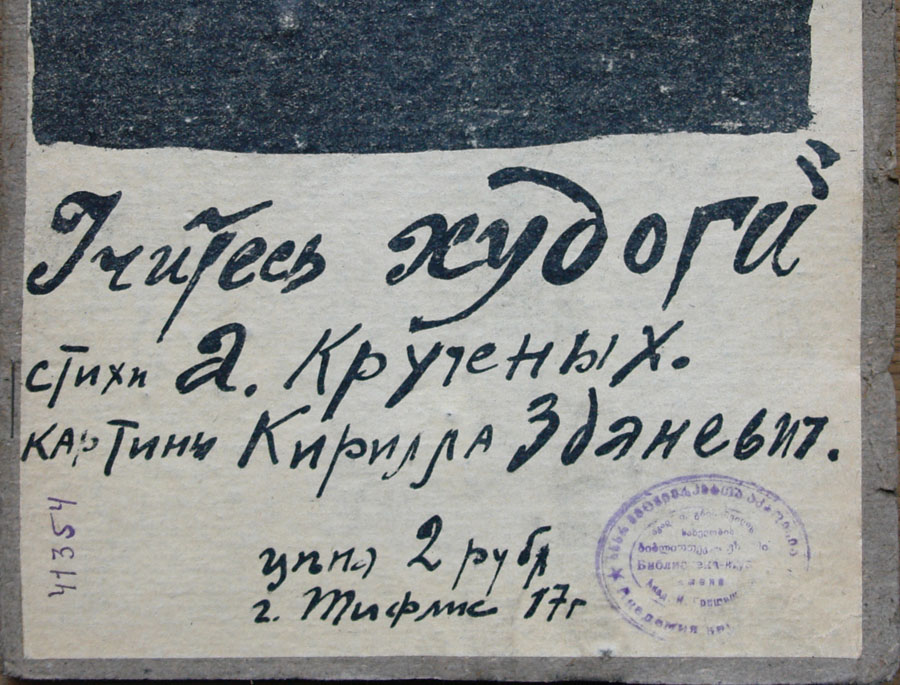 Учитесь худоги
стихи а. Крученых.
картины Кирилла Зданевич.
цена 2 рубл
г. Тифлис 17г
41354